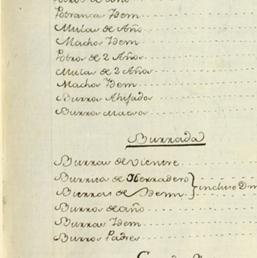 Potros de año
Potranca Idem
Mulas de Año
Machos Idem
Potros de 2 Años
Mulas de 2 Años
Machos Idem
Burro Ahijado
Burra Macra
Burrada
Burras de vientre
Burras de Herradero
Burras de Idem } inclive
Burros de año
Burras Idem
Burros Padres